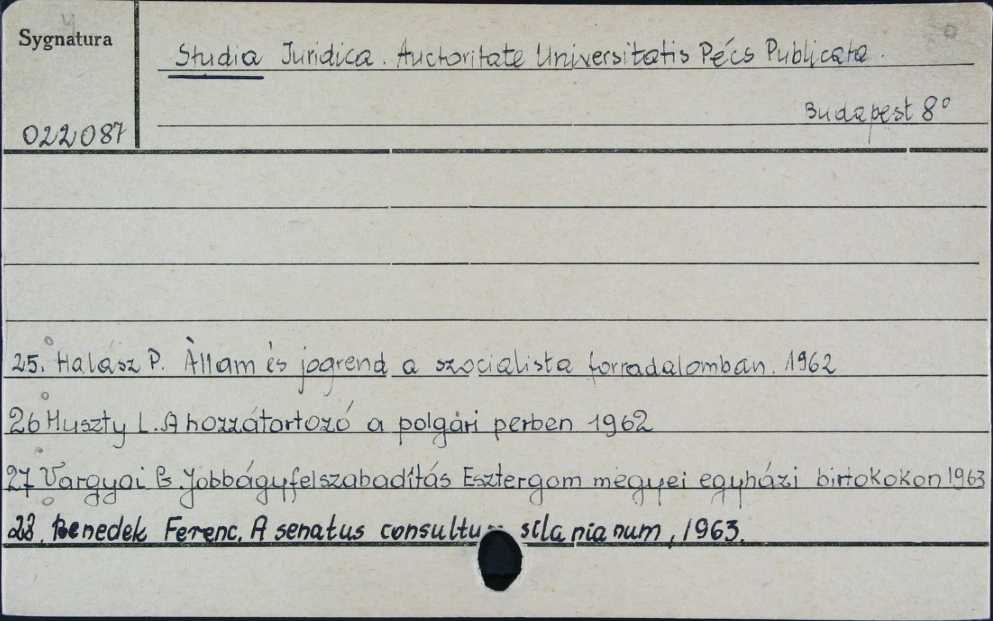 Sygnatura
Studia Juridica. Auctoritate Universitatis Pécs Publicata.
Budapest 8°
022087
25. Halász P. Állam és jogrend a szocialista forradalomban. 1962
26 Huszty L. A hozzátartozó a polgári perben 1962
27 Vargyai G. Jobbágyfelszabadítás Esztergom megyei egyházi birtokokon 1963
28. Benedek Ferenc. A senatus consultum silanianum, 1963.